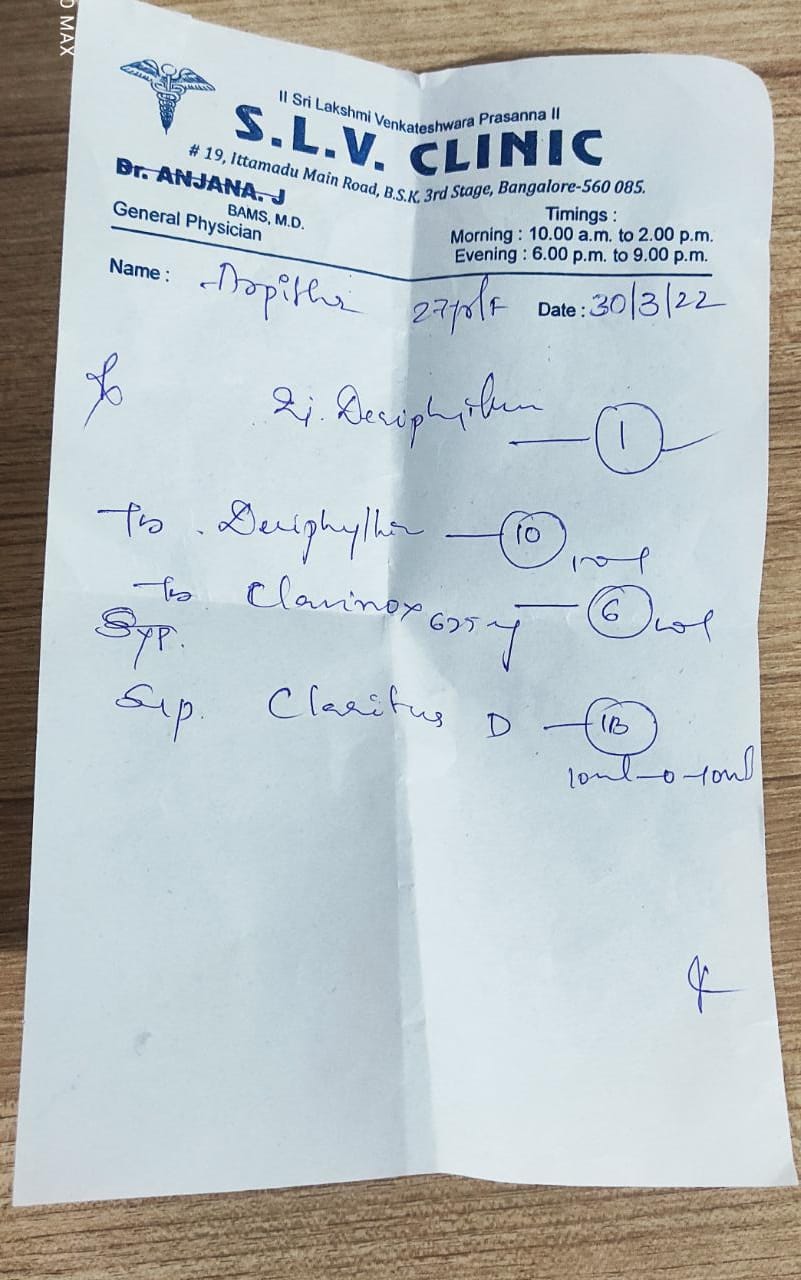 0 MAX
II Sri Lakshmi Venkateshwara Prasanna II
S.L.V. CLINIC
# 19, Ittamadu Main Road, B.S.K. 3rd Stage, Bangalore-560 085.
Dr. ANJANA. J
BAMS, M.D.
General Physician
Timings :
Morning : 10.00 a.m. to 2.00 p.m.
Evening : 6.00 p.m. to 9.00 p.m.
Name : Date : 30/3/22
1
Deriphyllin 10
6
Syp.
Syp. Claritus D 1B
10ml-0-10ml